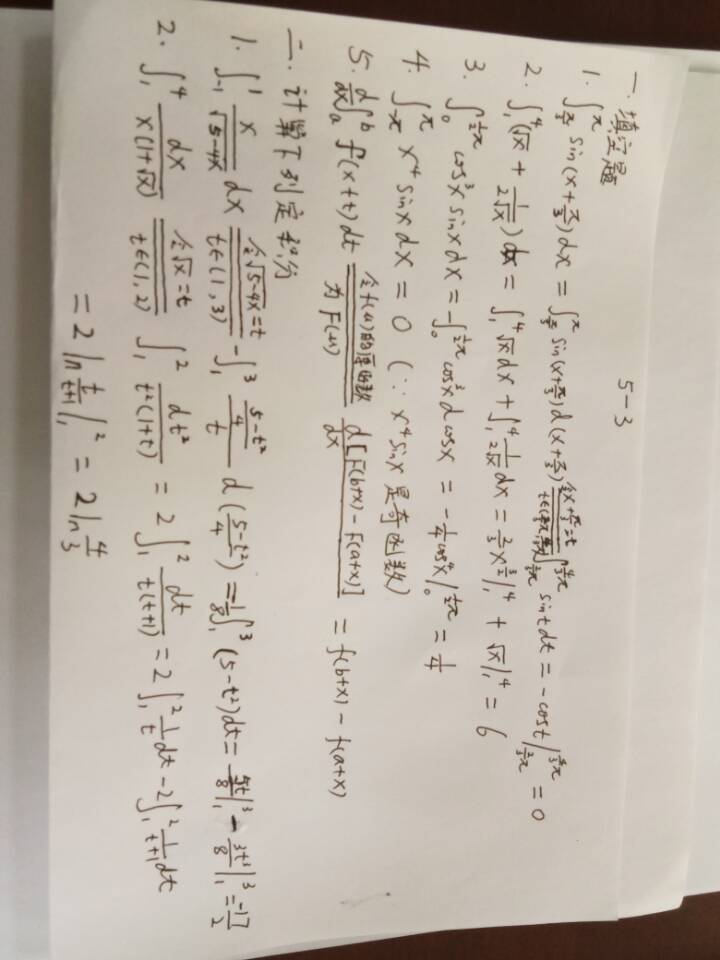 5-3
一. 填空题
1. ∫_{π/3}^{π} sin(x+π/3)dx = ∫_{π/3}^{π} sin(x+π/3)d(x+π/3) 令x+π/3=t ∫_{2/3π}^{4/3π} sint dt = -cost|_{2/3π}^{4/3π} = 0
2. ∫_1^4 (√x + 1/(2√x))dx = ∫_1^4 √x dx + ∫_1^4 1/(2√x) dx = 2/3 x^{3/2}|_1^4 + √x|_1^4 = 6
3. ∫_0^{1/2π} cos³x sinx dx = -∫_0^{1/2π} cosx³ d cosx = -1/4 cos⁴x|_0^{1/2π} = 1/4
4. ∫_{-π}^{π} x⁴ sinx dx = 0 (∵ x⁴sinx 是奇函数)
5. d/dx ∫_a^b f(x+t)dt 令f(u)的原函数为F(u) d[F(b+x)-F(a+x)]/dx = f(b+x) - f(a+x)
二. 计算下列定积分
1. ∫_{-1}^1 x/√(5-4x) dx 令√(5-4x)=t t∈(1,3) -∫_1^3 ((5-t²)/4)/t d((5-t²)/4) = -1/8∫_1^3 (5-t²)dt = 5t/8|_1^3 - 3t³/8|_1^3 = -17/2
2. ∫_1^4 dx/(x(1+√x)) 令√x=t t∈(1,2) ∫_1^2 dt²/(t²(1+t)) = 2∫_1^2 dt/(t(t+1)) = 2∫_1^2 1/t dt - 2∫_1^2 1/(t+1) dt
= 2 ln t/(t+1)|_1^2 = 2 ln 4/3